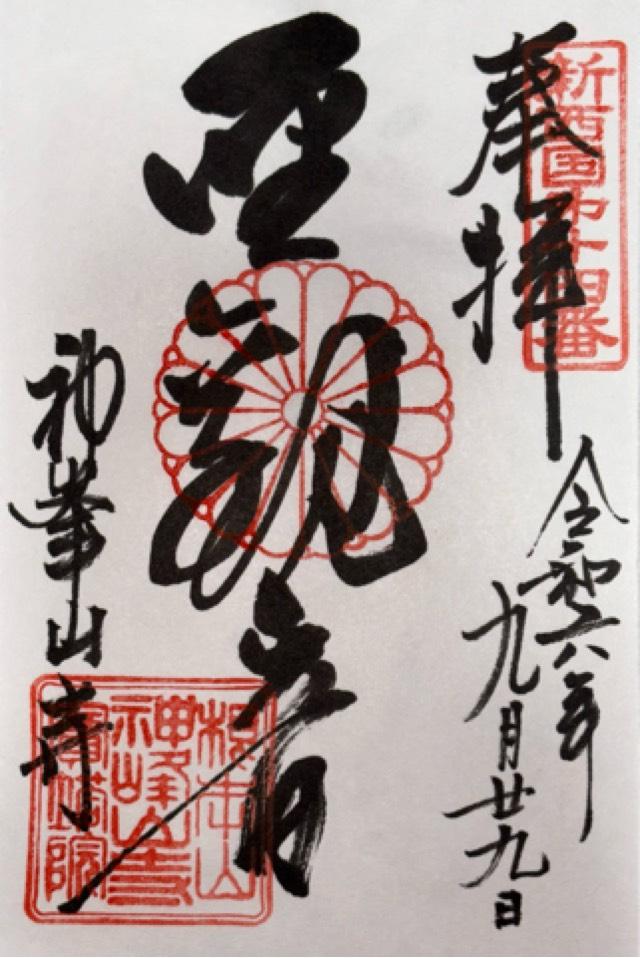 奉拝
新西国第十四番
令和六年
九月廿九日
聖観音
神峯山寺
根本山
神峰山寺
寳塔院